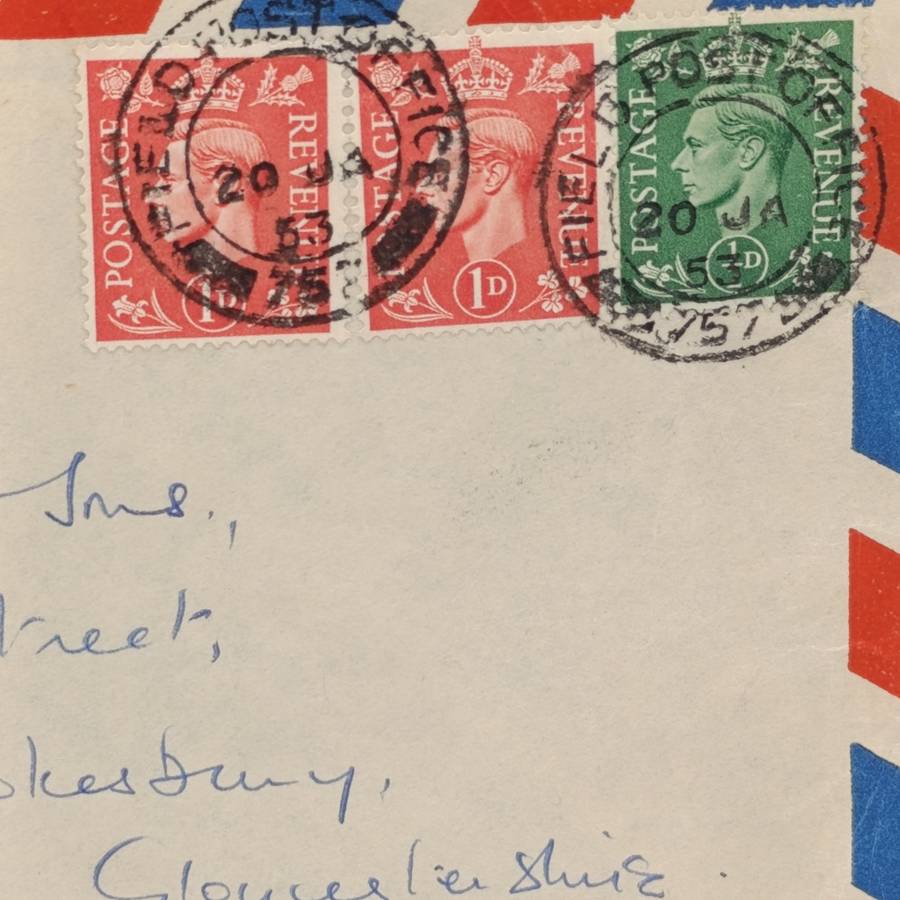 POSTAGE REVENUE 1D
POSTAGE REVENUE 1D
POSTAGE REVENUE ½D
FIELD POST OFFICE
20 JA
53
757
FIELD POST OFFICE
20 JA
53
757
Sons.,
treet,
kesbury,
Gloucestershire.